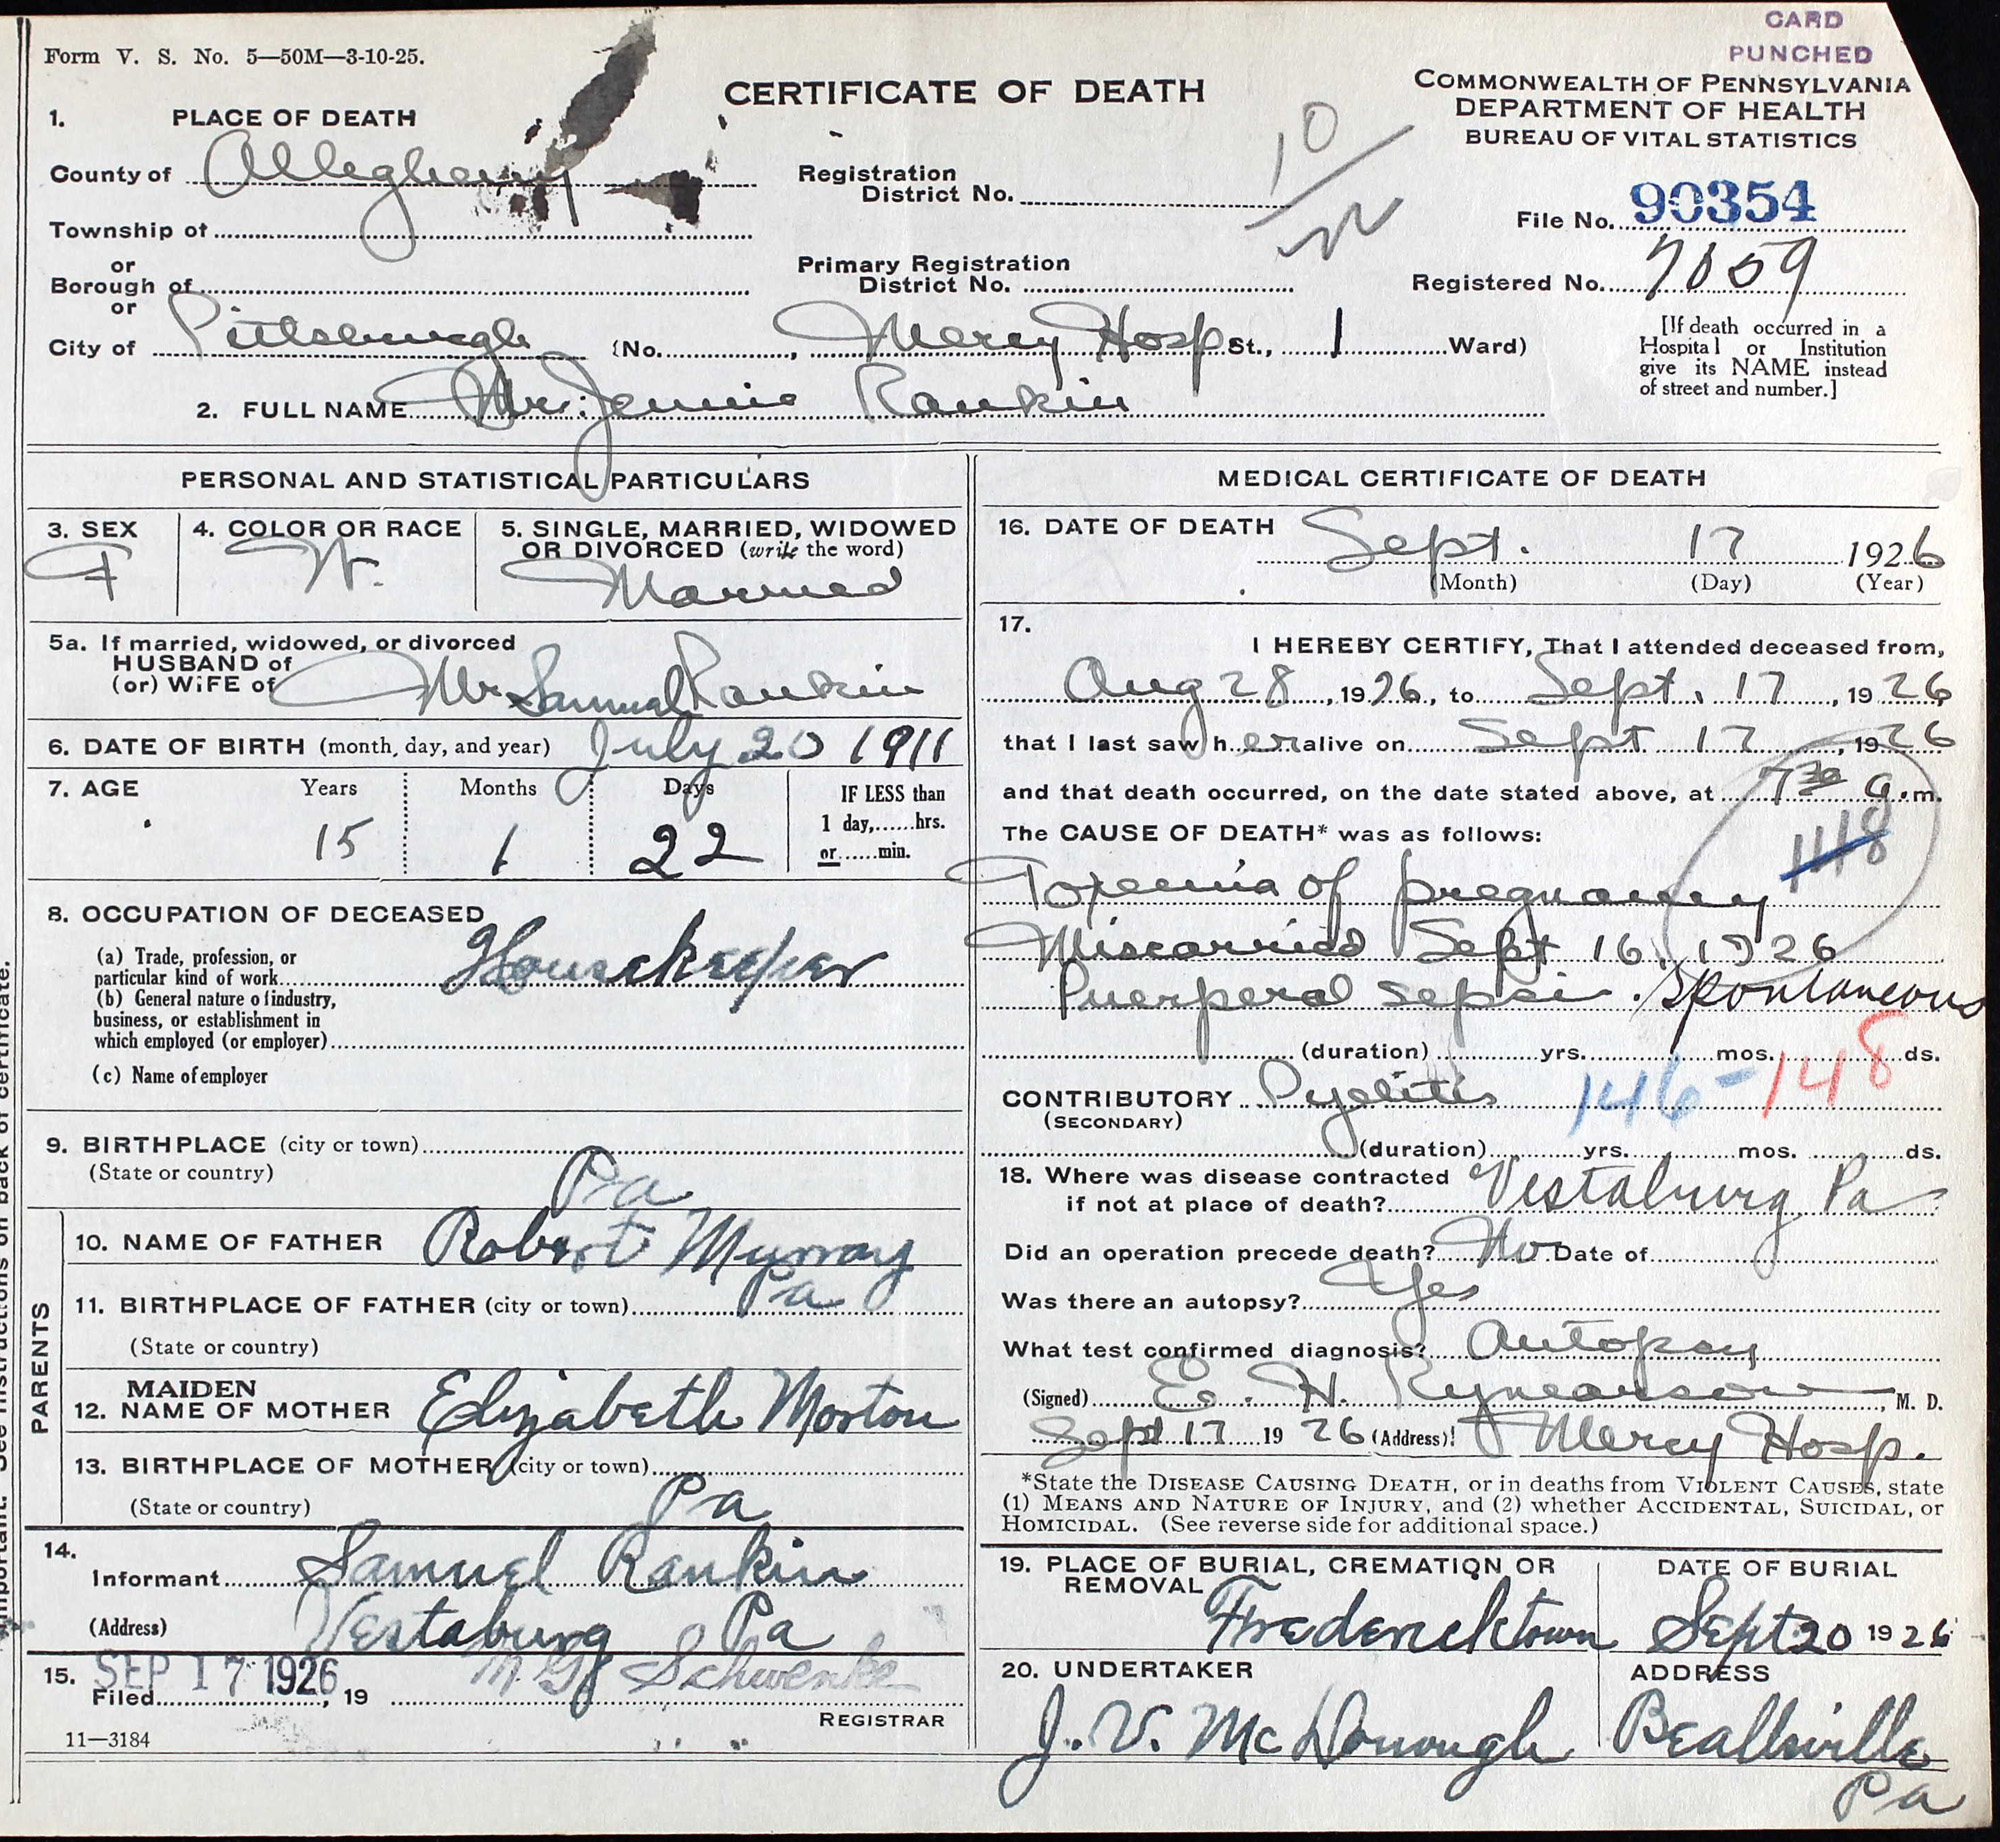 CARD
PUNCHED
Form V. S. No. 5—50M—3-10-25.
CERTIFICATE OF DEATH
COMMONWEALTH OF PENNSYLVANIA
DEPARTMENT OF HEALTH
BUREAU OF VITAL STATISTICS
1. PLACE OF DEATH
County of Allegheny
Registration
District No.
10
File No. 90354
Township of
or
Borough of
or
Primary Registration
District No.
Registered No. 7059
City of Pittsburgh (No. , Mercy Hosp St., 1 Ward)
[If death occurred in a
Hospital or Institution
give its NAME instead
of street and number.]
2. FULL NAME Mrs. Jennie Rankin
PERSONAL AND STATISTICAL PARTICULARS
3. SEX
F
4. COLOR OR RACE
W.
5. SINGLE, MARRIED, WIDOWED
OR DIVORCED (write the word)
Married
5a. If married, widowed, or divorced
HUSBAND of
(or) WIFE of Mr Samuel Rankin
6. DATE OF BIRTH (month, day, and year) July 20 1911
7. AGE Years Months Days
15 1 22
IF LESS than
1 day,......hrs.
or......min.
8. OCCUPATION OF DECEASED
(a) Trade, profession, or
particular kind of work Housekeeper
(b) General nature of industry,
business, or establishment in
which employed (or employer)
(c) Name of employer
9. BIRTHPLACE (city or town)
(State or country) Pa
PARENTS
10. NAME OF FATHER Robert Murray
11. BIRTHPLACE OF FATHER (city or town) Pa
(State or country)
12. MAIDEN
NAME OF MOTHER Elizabeth Morton
13. BIRTHPLACE OF MOTHER (city or town)
(State or country) Pa
14.
Informant Samuel Rankin
(Address) Vestaburg Pa
15. SEP 17 1926
Filed , 19
Schwenke
REGISTRAR
11—3184
MEDICAL CERTIFICATE OF DEATH
16. DATE OF DEATH Sept. 17 1926
(Month) (Day) (Year)
17.
I HEREBY CERTIFY, That I attended deceased from,
Aug 28, 1926, to Sept. 17, 1926
that I last saw her alive on Sept 17, 1926
and that death occurred, on the date stated above, at 7 30 a.m.
The CAUSE OF DEATH* was as follows:
148
Toxemia of pregnancy
Miscarried Sept 16, 1926
Puerperal sepsis. Spontaneous
(duration) yrs. mos. ds.
CONTRIBUTORY Pyelitis 146-148
(SECONDARY)
(duration) yrs. mos. ds.
18. Where was disease contracted
if not at place of death? Vestaburg Pa
Did an operation precede death? No Date of
Was there an autopsy? Yes
What test confirmed diagnosis? Autopsy
(Signed) E. H. Rynearson, M. D.
Sept 17 1926 (Address) Mercy Hosp.
*State the DISEASE CAUSING DEATH, or in deaths from VIOLENT CAUSES, state
(1) MEANS AND NATURE OF INJURY, and (2) whether ACCIDENTAL, SUICIDAL, or
HOMICIDAL. (See reverse side for additional space.)
19. PLACE OF BURIAL, CREMATION OR
REMOVAL Fredericktown
DATE OF BURIAL
Sept 20 1926
20. UNDERTAKER
J. V. McDonough
ADDRESS
Beallsville
Pa
important. See instructions on back of certificate.